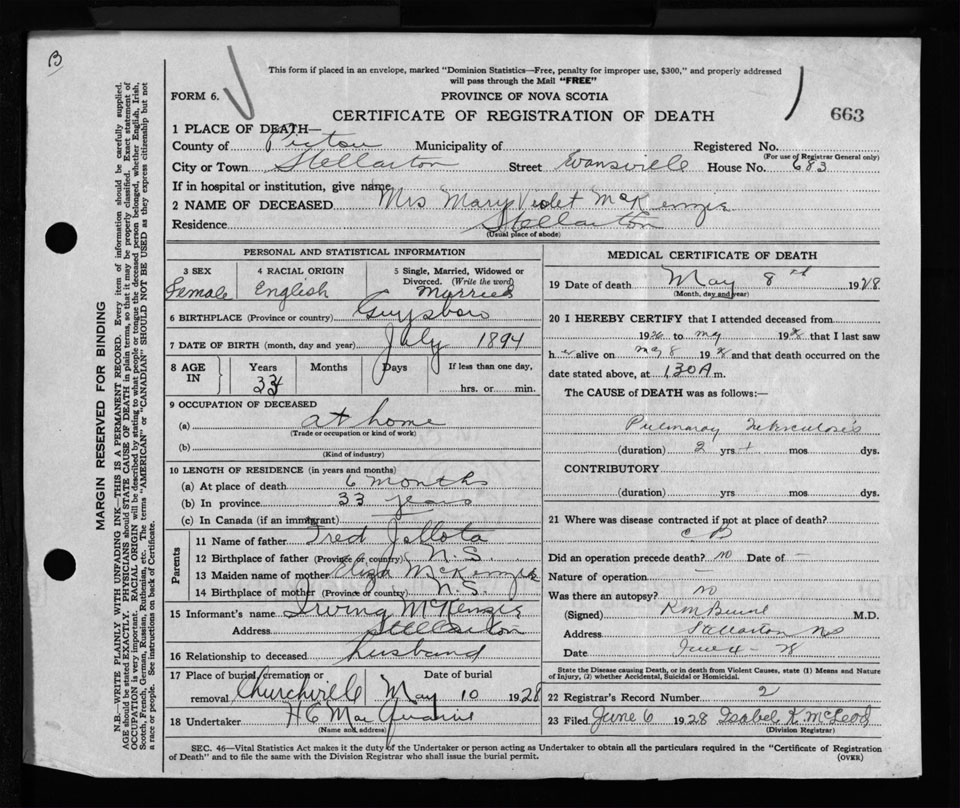 B
This form if placed in an envelope, marked "Dominion Statistics—Free, penalty for improper use, $300," and properly addressed
will pass through the Mail "FREE"
FORM 6.
PROVINCE OF NOVA SCOTIA
663
CERTIFICATE OF REGISTRATION OF DEATH
1 PLACE OF DEATH—
County of Pictou Municipality of Registered No.
(For use of Registrar General only)
City or Town Stellarton Street Evansville House No. 683
If in hospital or institution, give name
2 NAME OF DECEASED Mrs Mary Violet McKenzie
Residence Stellarton
(Usual place of abode)
PERSONAL AND STATISTICAL INFORMATION
3 SEX 4 RACIAL ORIGIN 5 Single, Married, Widowed or
Divorced. (Write the word)
Female English Married
6 BIRTHPLACE (Province or country) Guysboro
7 DATE OF BIRTH (month, day and year) July 1894
8 AGE IN Years Months Days If less than one day,
33 hrs. or min.
9 OCCUPATION OF DECEASED
(a) at home
(Trade or occupation or kind of work)
(b)
(Kind of industry)
10 LENGTH OF RESIDENCE (in years and months)
(a) At place of death 6 months
(b) In province 33 years
(c) In Canada (if an immigrant)
Parents
11 Name of father Fred
12 Birthplace of father (Province or country) N.S.
13 Maiden name of mother Eliza McKenzie
14 Birthplace of mother (Province or country) N.S.
15 Informant's name Irving McKenzie
Address Stellarton
16 Relationship to deceased husband
17 Place of burial, cremation or Date of burial
removal Churchville May 10 1928
18 Undertaker H C MacQuarrie
(Name and address)
MEDICAL CERTIFICATE OF DEATH
19 Date of death May 8th 1928
(Month, day and year)
20 I HEREBY CERTIFY that I attended deceased from
1926 to May 1928 that I last saw
her alive on May 8 1928 and that death occurred on the
date stated above, at 1.30 A m.
The CAUSE of DEATH was as follows:—
Pulmonary Tuberculosis
(duration) 2 yrs + mos dys.
CONTRIBUTORY
(duration) yrs mos dys.
21 Where was disease contracted if not at place of death?
C B
Did an operation precede death? no Date of —
Nature of operation —
Was there an autopsy? no
(Signed) M.D.
Address Stellarton NS
Date June 4 - 28
State the Disease causing Death, or in death from Violent Causes, state (1) Means and Nature
of Injury, (2) whether Accidental, Suicidal or Homicidal.
22 Registrar's Record Number 2
23 Filed June 6 1928 Isabel K McLeod
(Division Registrar)
SEC. 46—Vital Statistics Act makes it the duty of the Undertaker or person acting as Undertaker to obtain all the particulars required in the "Certificate of Registration
of Death" and to file the same with the Division Registrar who shall issue the burial permit.
(OVER)
MARGIN RESERVED FOR BINDING
N.B.—WRITE PLAINLY WITH UNFADING INK—THIS IS A PERMANENT RECORD. Every item of information should be carefully supplied.
AGE should be stated EXACTLY. PHYSICIANS should STATE CAUSE OF DEATH in plain terms, so that it may be properly classified. Exact statement of
OCCUPATION is very important. RACIAL ORIGIN will be described by stating to what people or tongue the deceased person belonged, whether English, Irish,
Scotch, French, German, Russian, Ruthenian, etc. The terms "AMERICAN" or "CANADIAN" SHOULD NOT BE USED as they express citizenship but not
a race or people. See instructions on back of Certificate.